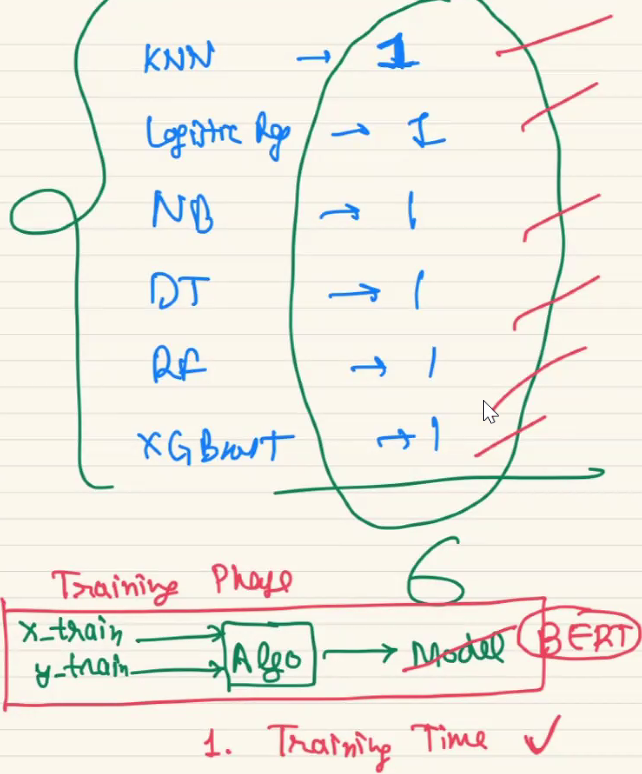 KNN → 1
Logistic Reg → 1
NB → 1
DT → 1
RF → 1
XGBoost → 1
6
Training Phase
x_train
y_train
Algo → Model
BERT
1. Training Time ✓